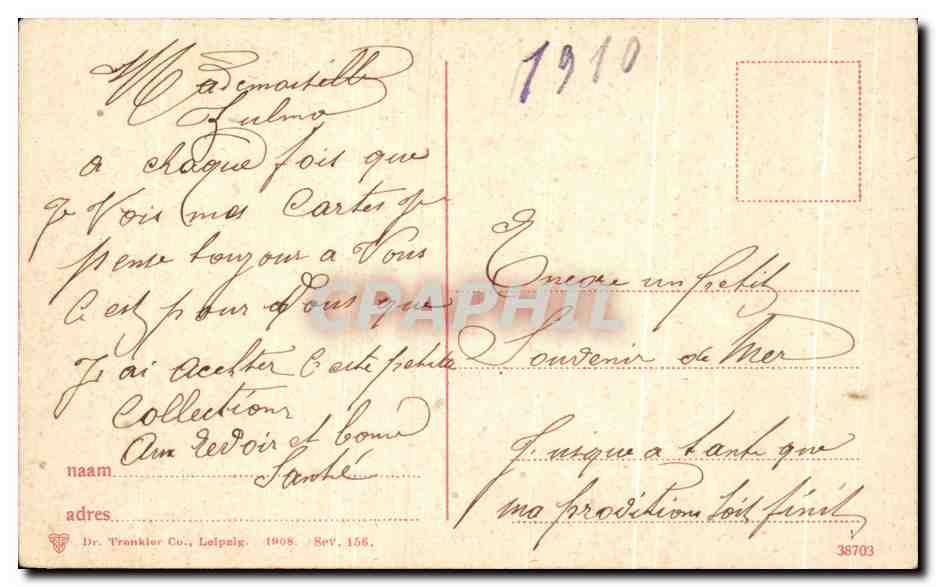 1910
Mademoiselle
Zulma
a chaque fois que
je Vois mes Cartes je
pense toujour a Vous
C'est pour Vous que
J'ai acetter cette petite
Collections
Aux revoir et bonne
Santé
naam
adres
Dr. Trenkler Co., Leipzig. 1908. Sev. 156.
Encore un petit
Souvenir de Mer
Jusque a tante que
ma proditions soit finit
38703
CPAPHIL